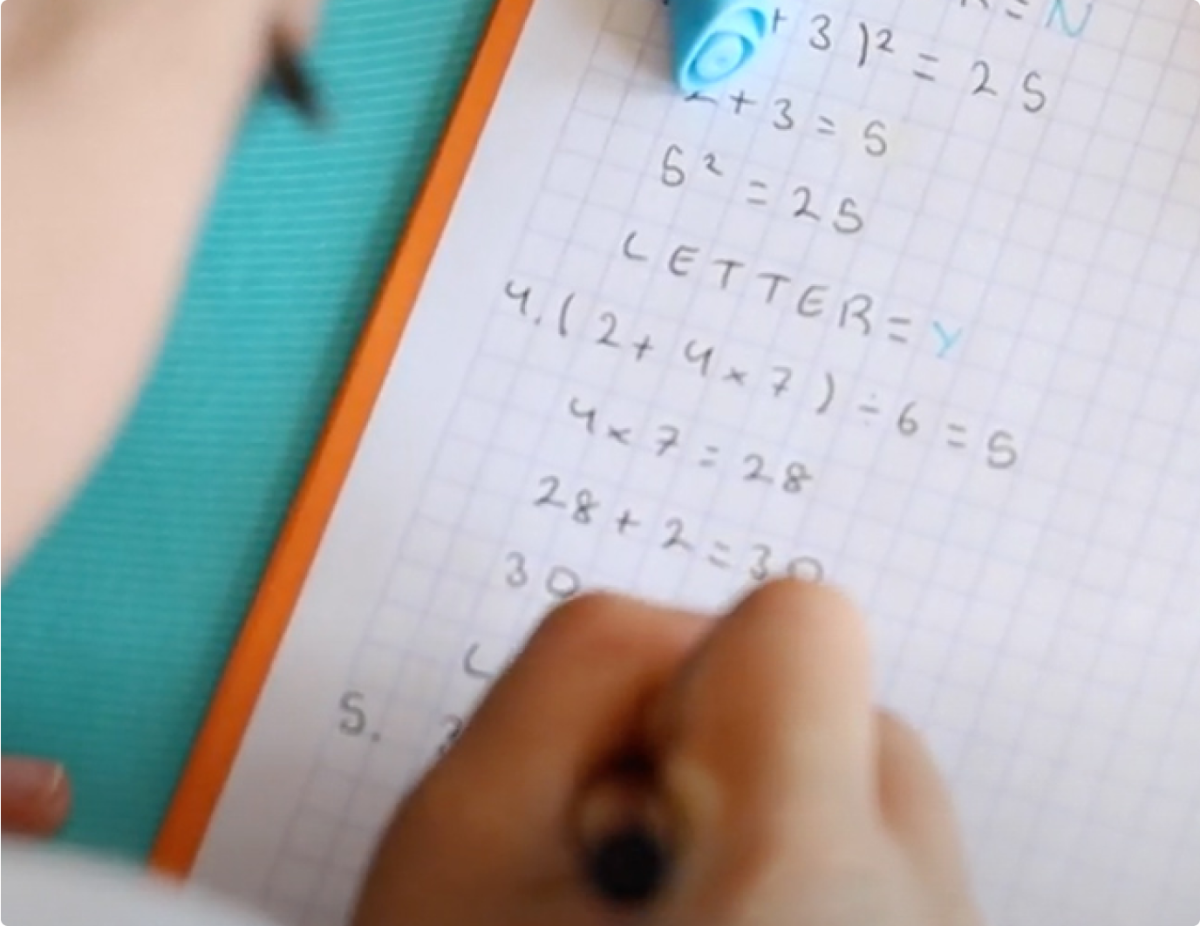 = N
+ 3)² = 25
2 + 3 = 5
5² = 25
LETTER = Y
4. (2 + 4 × 7) ÷ 6 = 5
4 × 7 = 28
28 + 2 = 30
30
L
5. 3